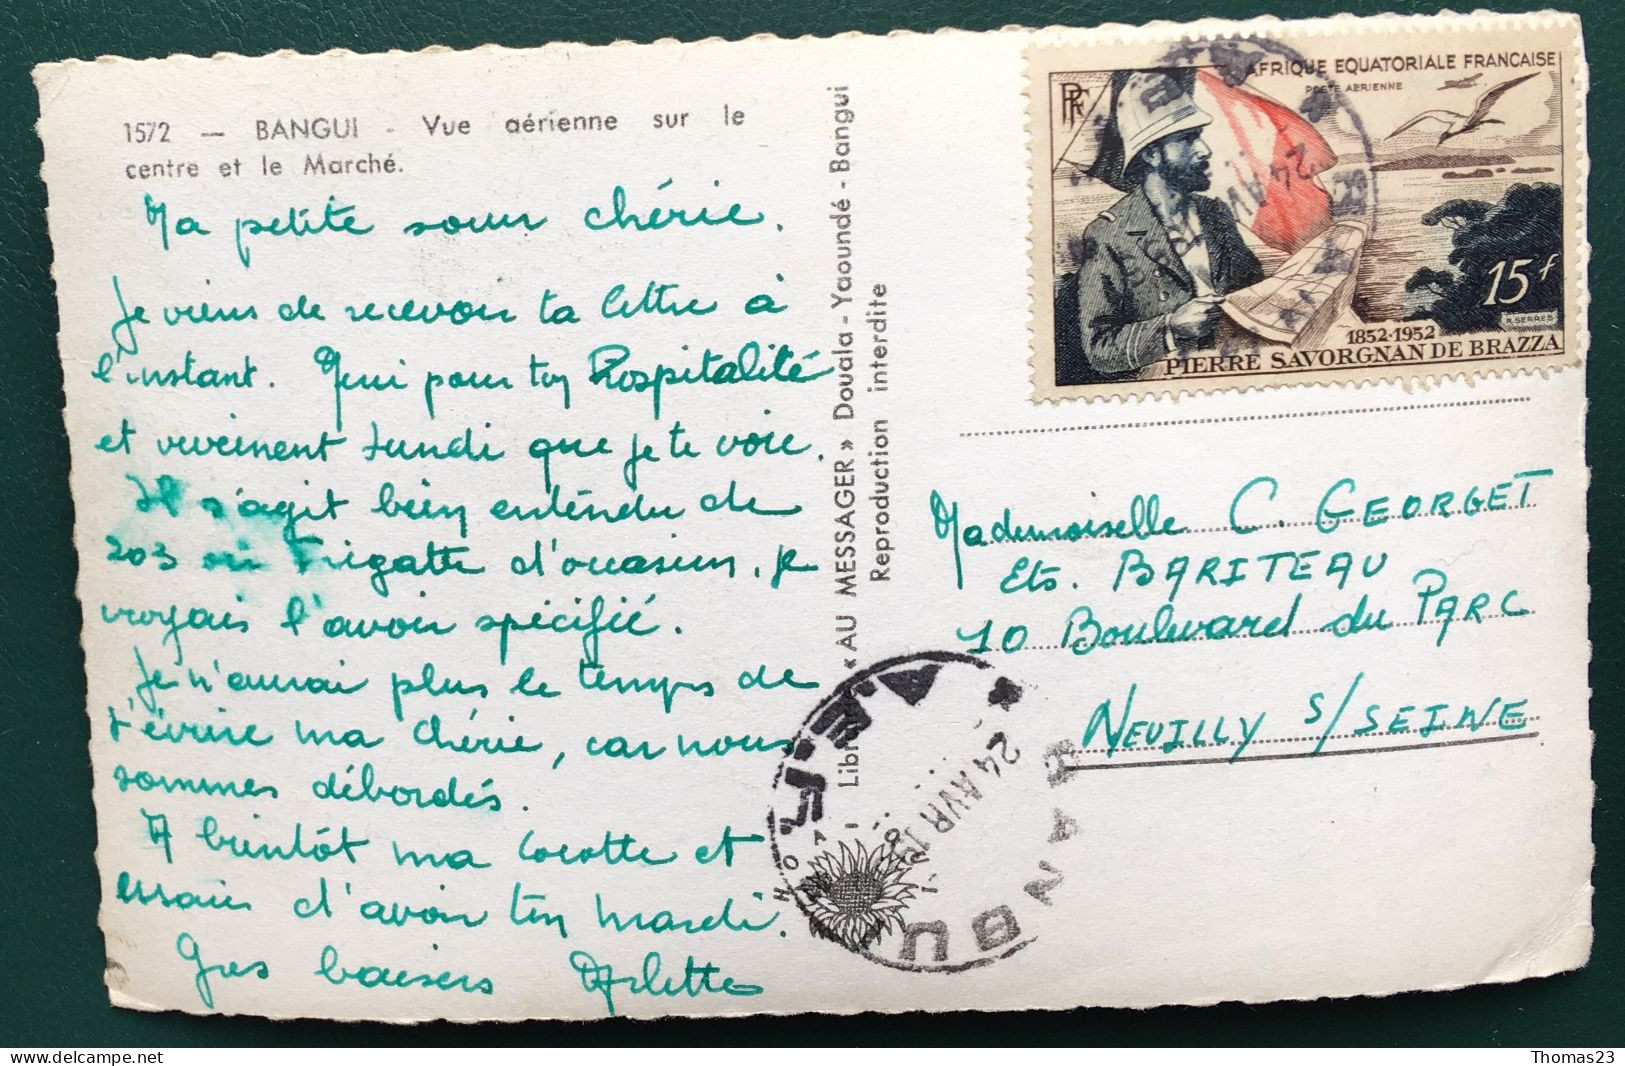 1572 — BANGUI - Vue aérienne sur le
centre et le Marché.
Ma petite sœur chérie.
Je viens de recevoir ta lettre à
l'instant. Oui pour ton hospitalité
et vivement lundi que je te voie.
Il s'agit bien entendu de
203 ou Frégatte d'occasion, je
croyais l'avoir spécifié.
Je n'aurai plus le temps de
t'écrire ma chérie, car nous
sommes débordés.
A bientôt ma cocotte et
essaie d'avoir ton mardi.
Gros baisers Arlette
« AU MESSAGER » Douala - Yaoundé - Bangui
Reproduction interdite
AFRIQUE EQUATORIALE FRANCAISE
POSTE AERIENNE
RF
15f
R. SERRES
1852-1952
PIERRE SAVORGNAN DE BRAZZA
24 AVR
Mademoiselle C. GEORGET
Ets. BARITEAU
10 Boulevard du PARC
NEUILLY S/SEINE
BANGUI
24 AVR 195
A.E.F.
Thomas23